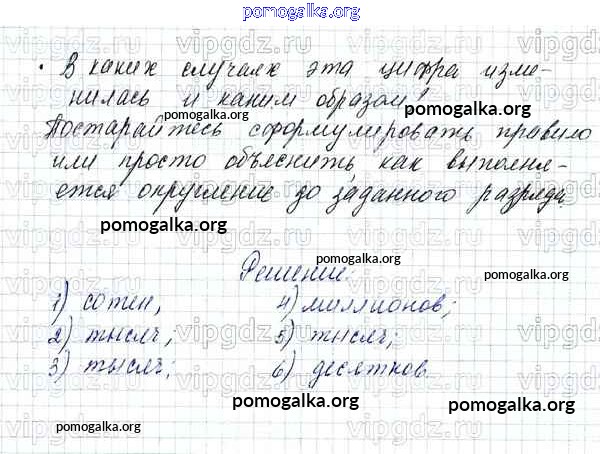 pomogalka.org
• В каких случаях эта цифра изме-
нилась и каким образом?
pomogalka.org
Постарайтесь сформулировать правило
или просто объяснить, как выполня-
ется округление до заданного разряда.
pomogalka.org
pomogalka.org
Решение:
pomogalka.org
pomogalka.org
1) сотен,
4) миллионов;
2) тысяч,
5) тысяч;
3) тысяч;
6) десятков
pomogalka.org
pomogalka.org